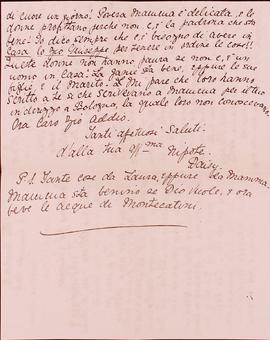 di cuore un uomo! Povera Mamma è delicata, e le
donne profittano perchè non c'è la padrona che sta
bene! Io dico sempre che c'è bisogno di avere in
Casa lo zio Giuseppe per tenere in ordine le cose!!
Queste donne non hanno paura se non c'è un
uomo in Casa! La Janie sta bene, eppure le sue
figlie, e il Marito. E Mi pare che loro hanno
Scritto a te o che Scrivevano a Mamma per il tuo
indirizzo a Bologna, la quale loro non conoscevano.
Ora Caro Zio Addio.
Tanti affettuosi Saluti
d'alla tua aff.ma Nipote.
Daisy.
P.S. Tante cose da Laura, eppure da Mamma.
Mamma sta benino se Dio vuole, e ora
beve le acque di Montecatini.